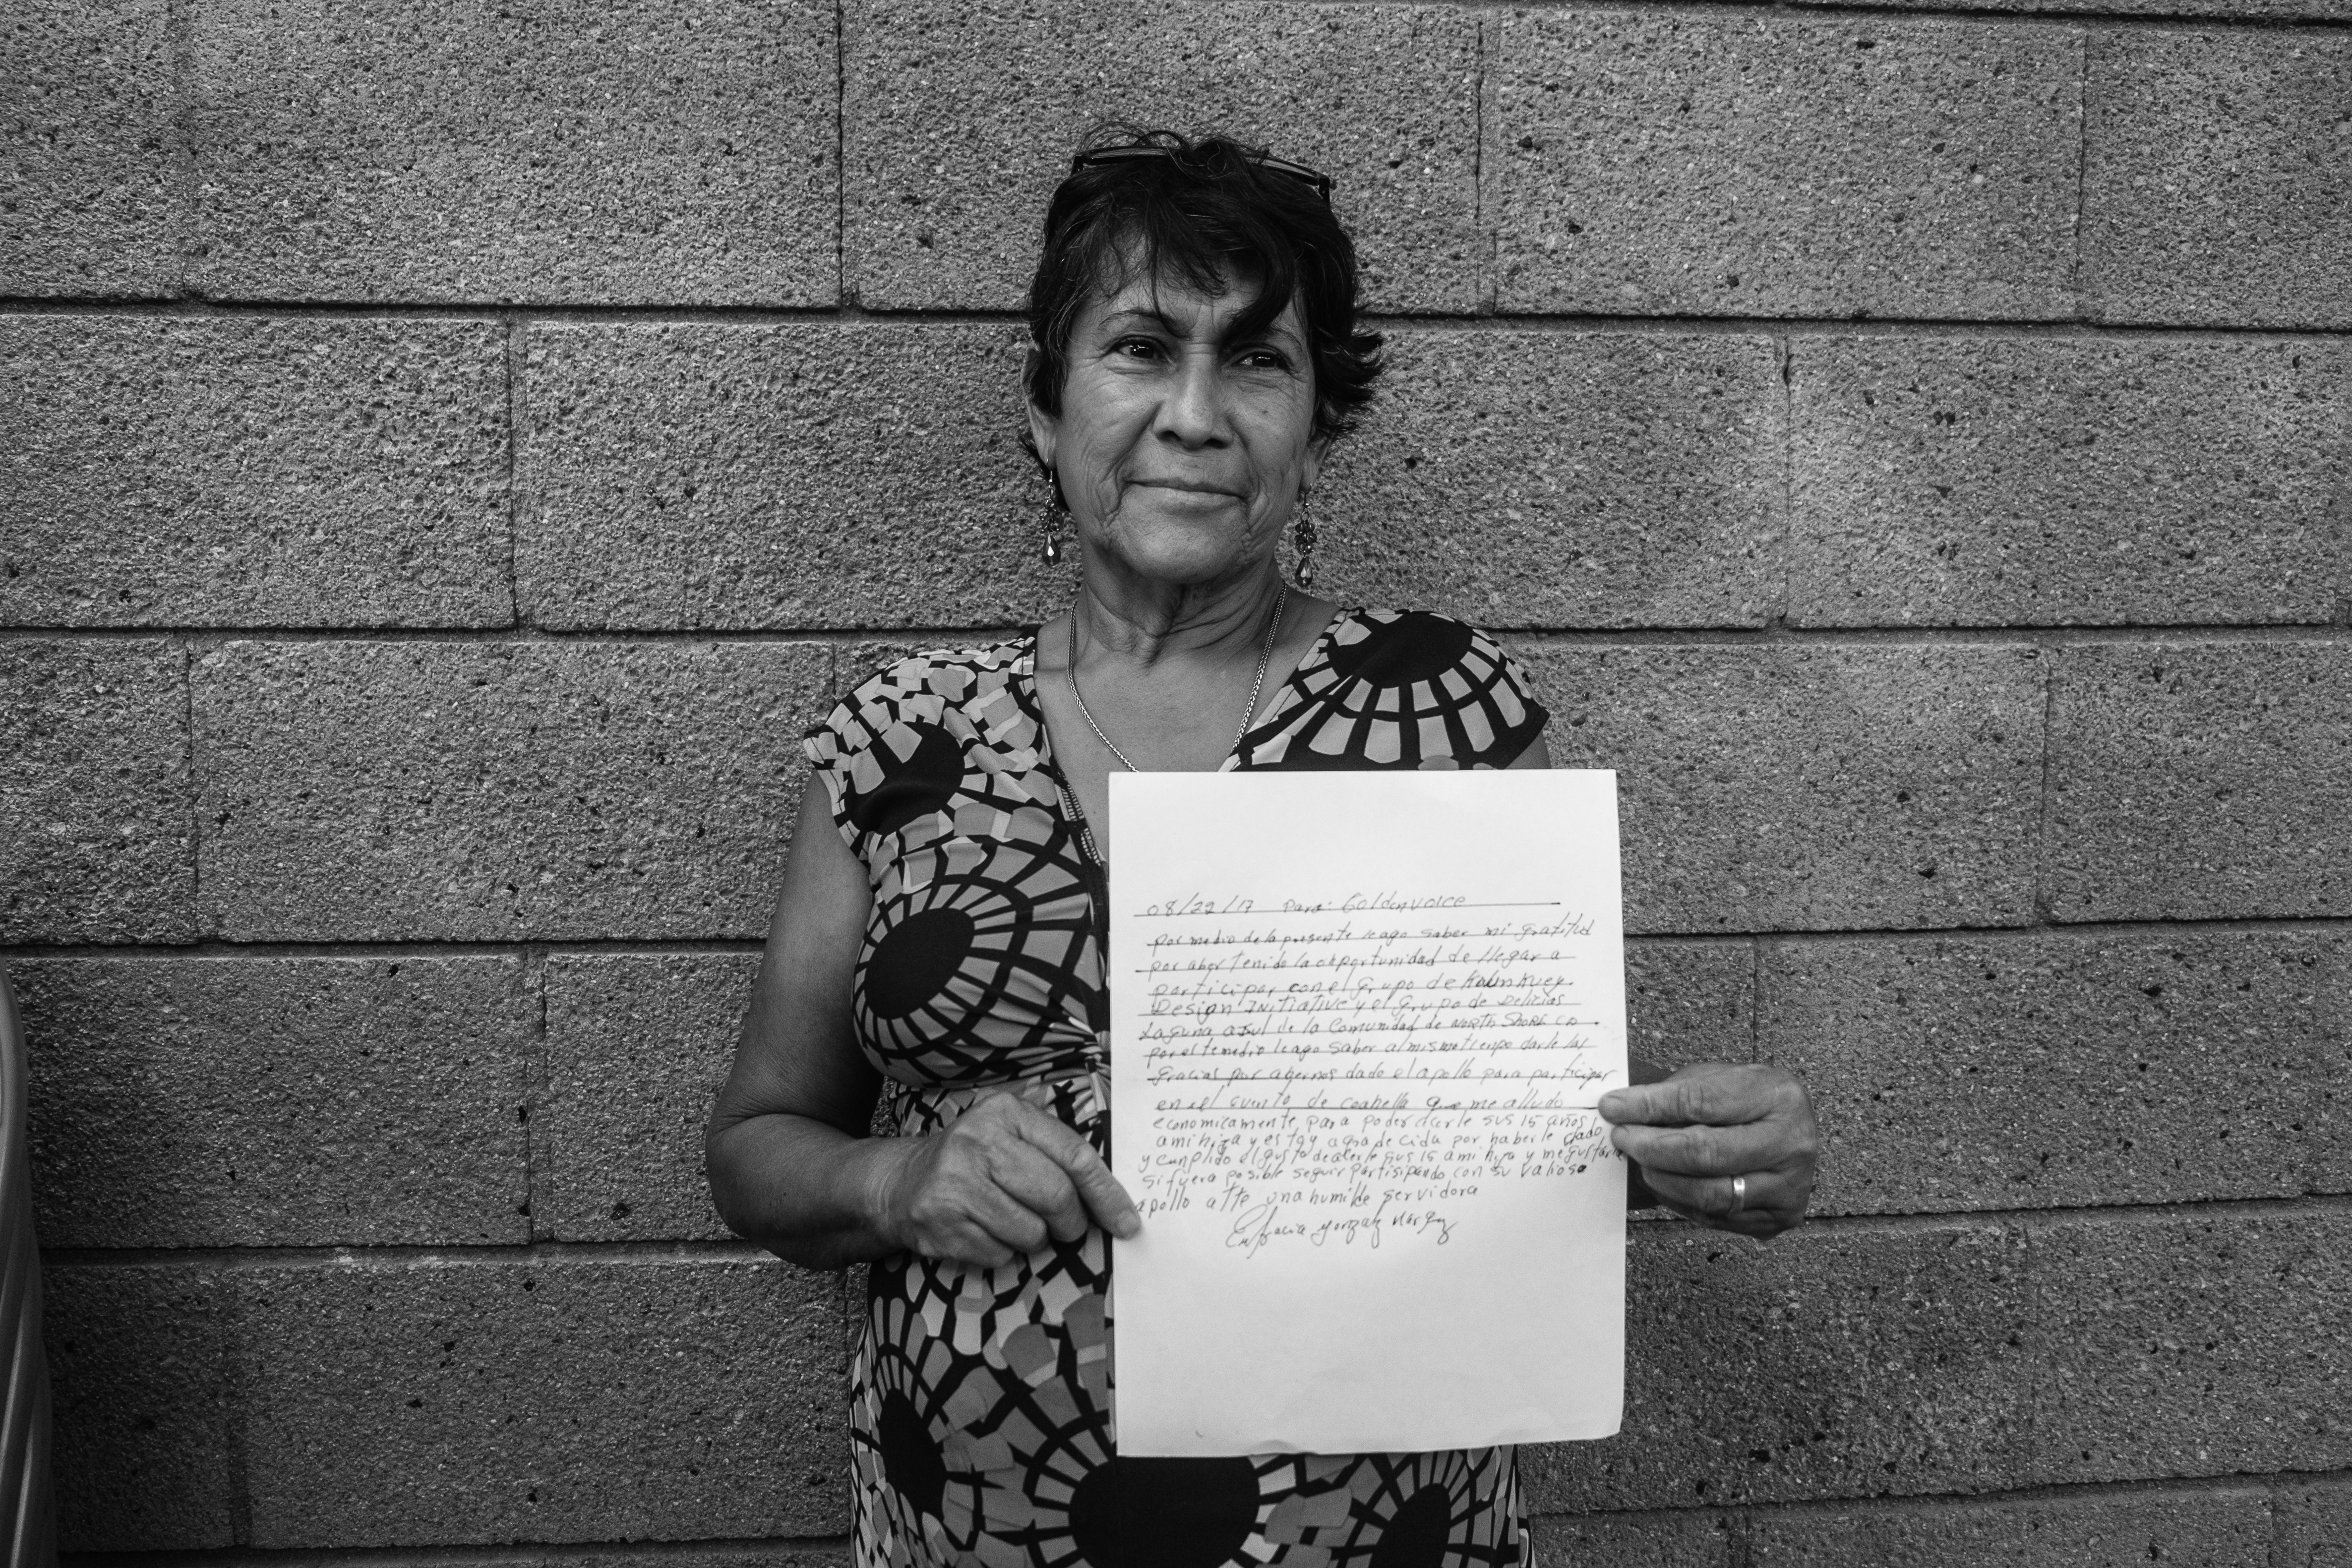 08/22/17 Para: Goldenvoice
por medio de la presente le ago saber mi gratitud
por aber tenido la ohportunidad de llegar a
participar con el Grupo de Kounkuey
Design Initiative y el Grupo de Delicias
Laguna asul de la Comunidad de North Shore ca
por este medio le ago saber al mismo tiempo darle las
gracias por abernos dado el apollo para participar
en el evento de coahella que me alludo
economicamente, para poder acerle sus 15 años
a mi hija y estoy agradecida por haberle dado
y cunplido el gusto de acerle sus 15 a mi hija y me gustaria
si fuera posible seguir partisipando con su valioso
apollo atte una humilde servidora